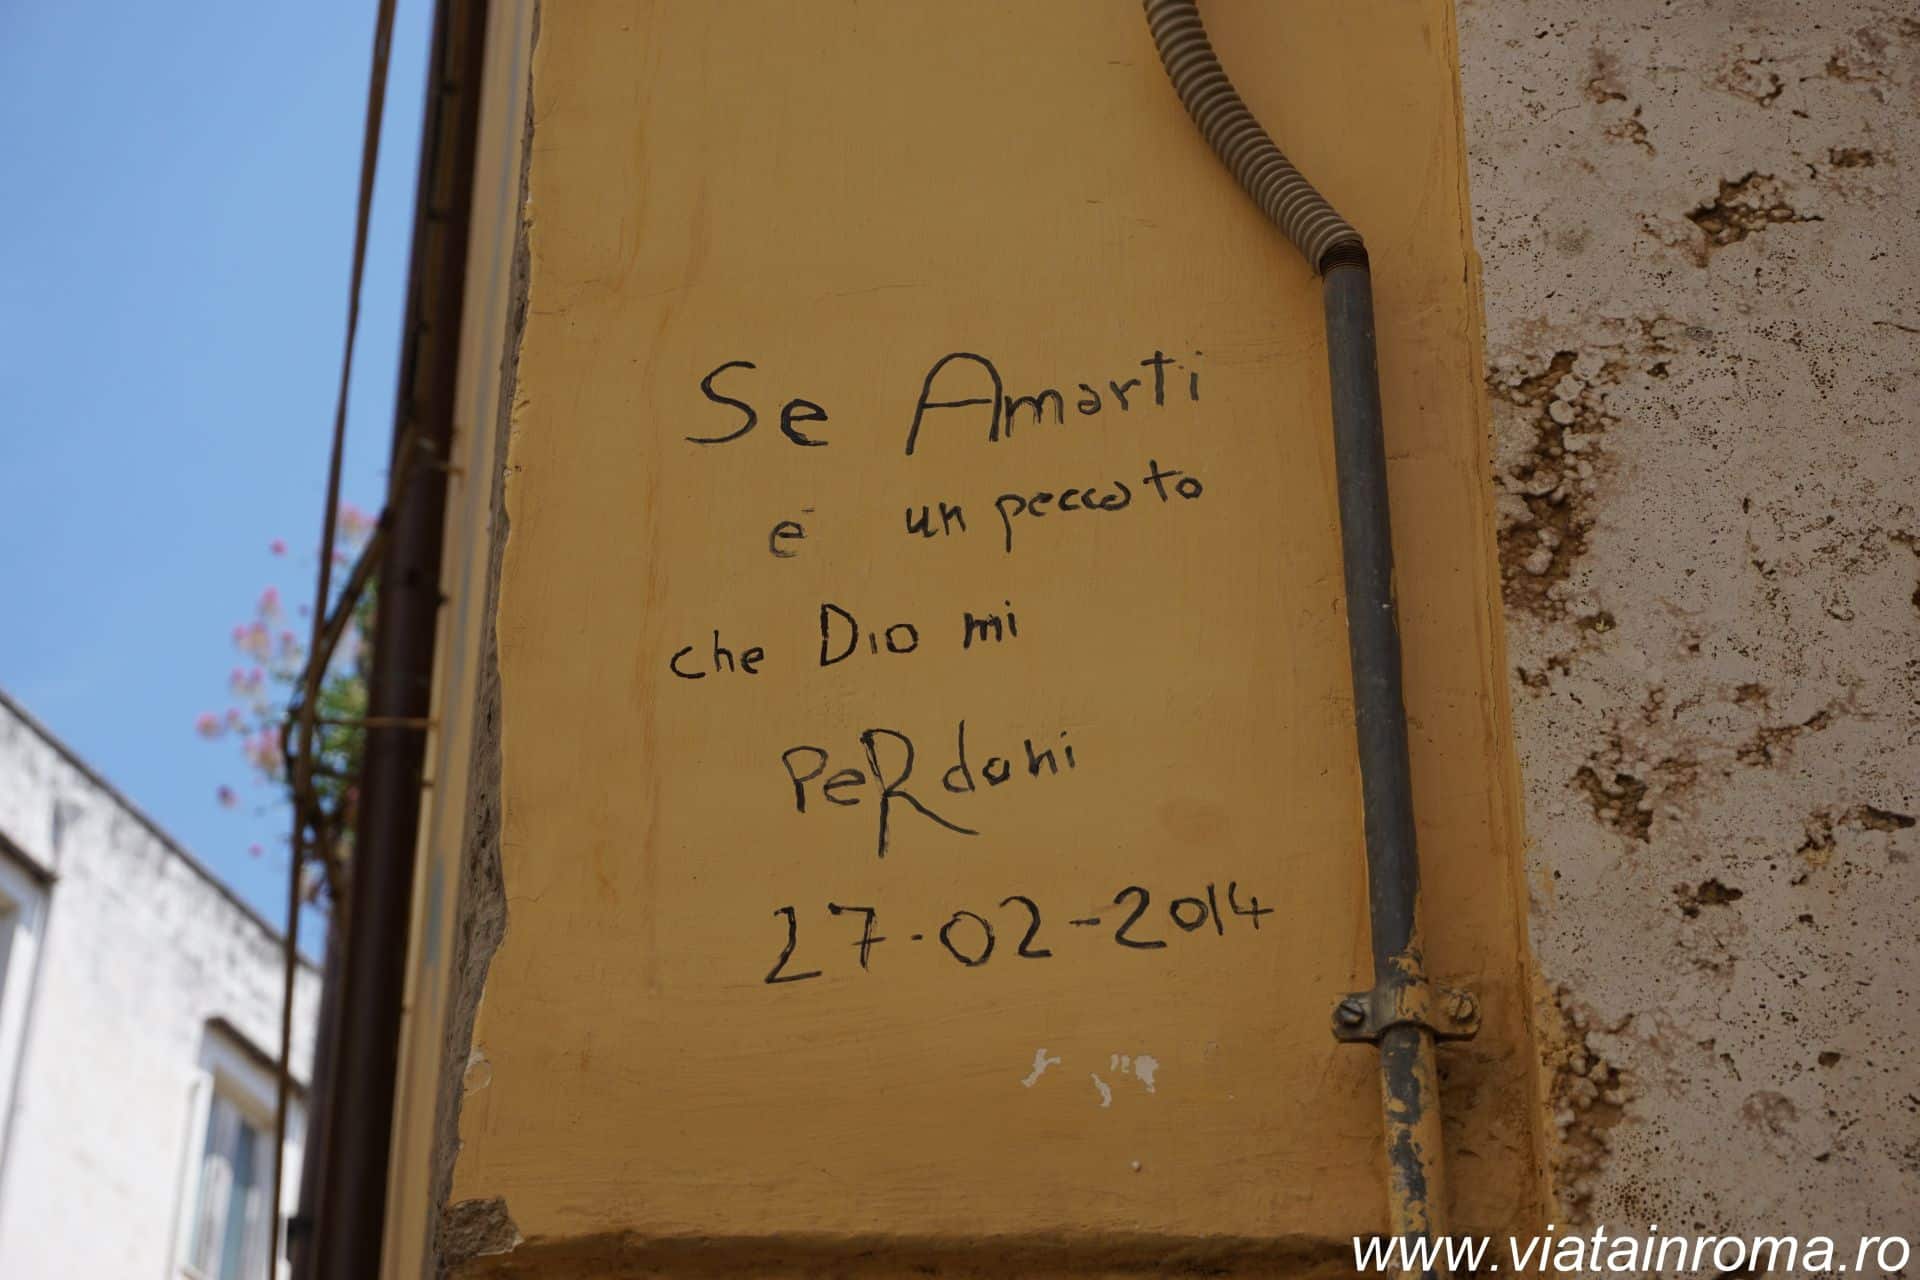 Se Amarti
e' un peccato
che Dio mi
PeRdoni
27-02-2014
www.viatainroma.ro